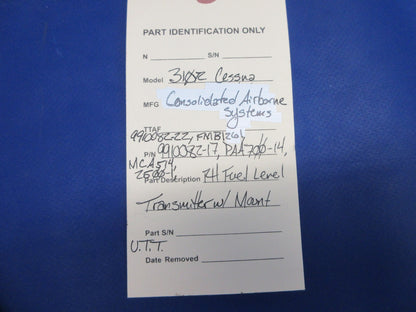 PART IDENTIFICATION ONLY
N S/N
Model 310R Cessna
MFG Consolidated Airborne
Systems
TTAF
9910082-22, FMB126,
P/N 9910082-17, PAA700-14,
MCA514,
2500-1,
Part Description RH Fuel Level
Transmitter w/ Mount
Part S/N
U.T.T.
Date Removed